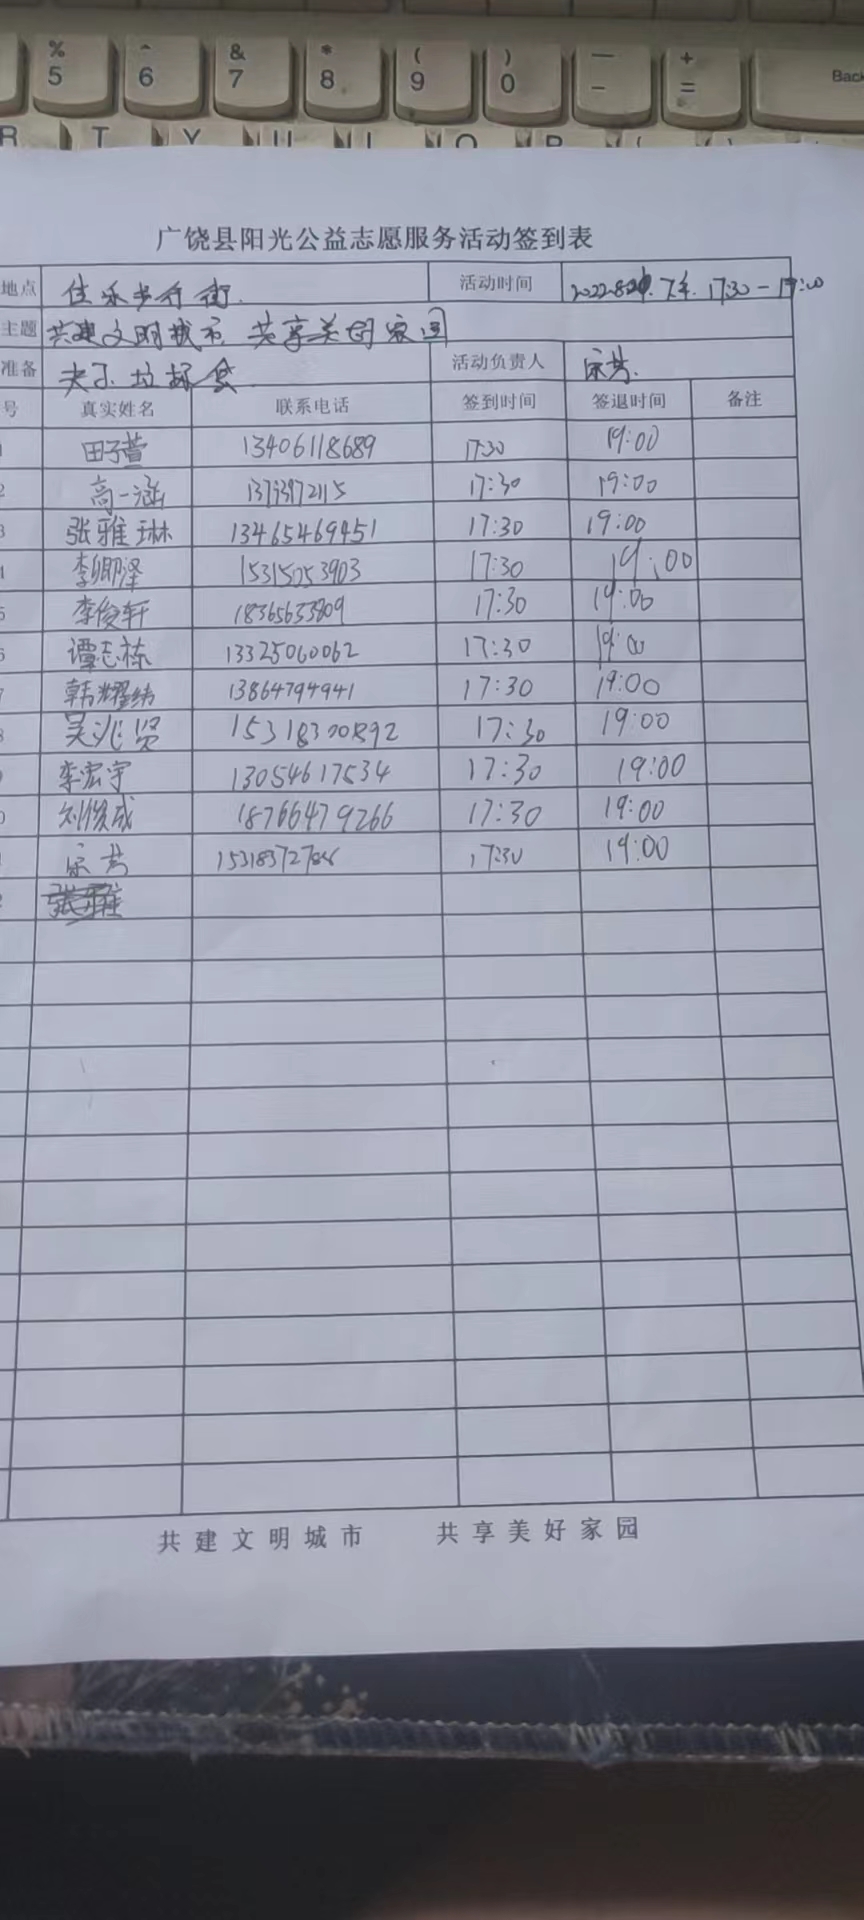 % ^ & * ( ) — +
5 6 7 8 9 0 - = Back
R T Y U I O P
广饶县阳光公益志愿服务活动签到表
地点 佳乐步行街. 活动时间 下午. 17:30 — 19:00
主题 共建文明城市 共享美好家园
准备 夹子 垃圾袋 活动负责人 宋芳.
号 真实姓名 联系电话 签到时间 签退时间 备注
1 田子萱 13406118689 17:30 19:00
2 高一涵 17:30 19:00
3 张雅琳 13465469451 17:30 19:00
4 李卿泽 15315053903 17:30 19:00
5 李俊轩 18365633809 17:30 19:00
6 谭志栋 13325060062 17:30 19:00
7 韩耀纬 13864794941 17:30 19:00
8 吴兆贤 15318370892 17:30 19:00
9 李宏宇 13054617534 17:30 19:00
0 刘俊成 18766479266 17:30 19:00
1 宋芳 17:30 19:00
2 张雅
共建文明城市 共享美好家园